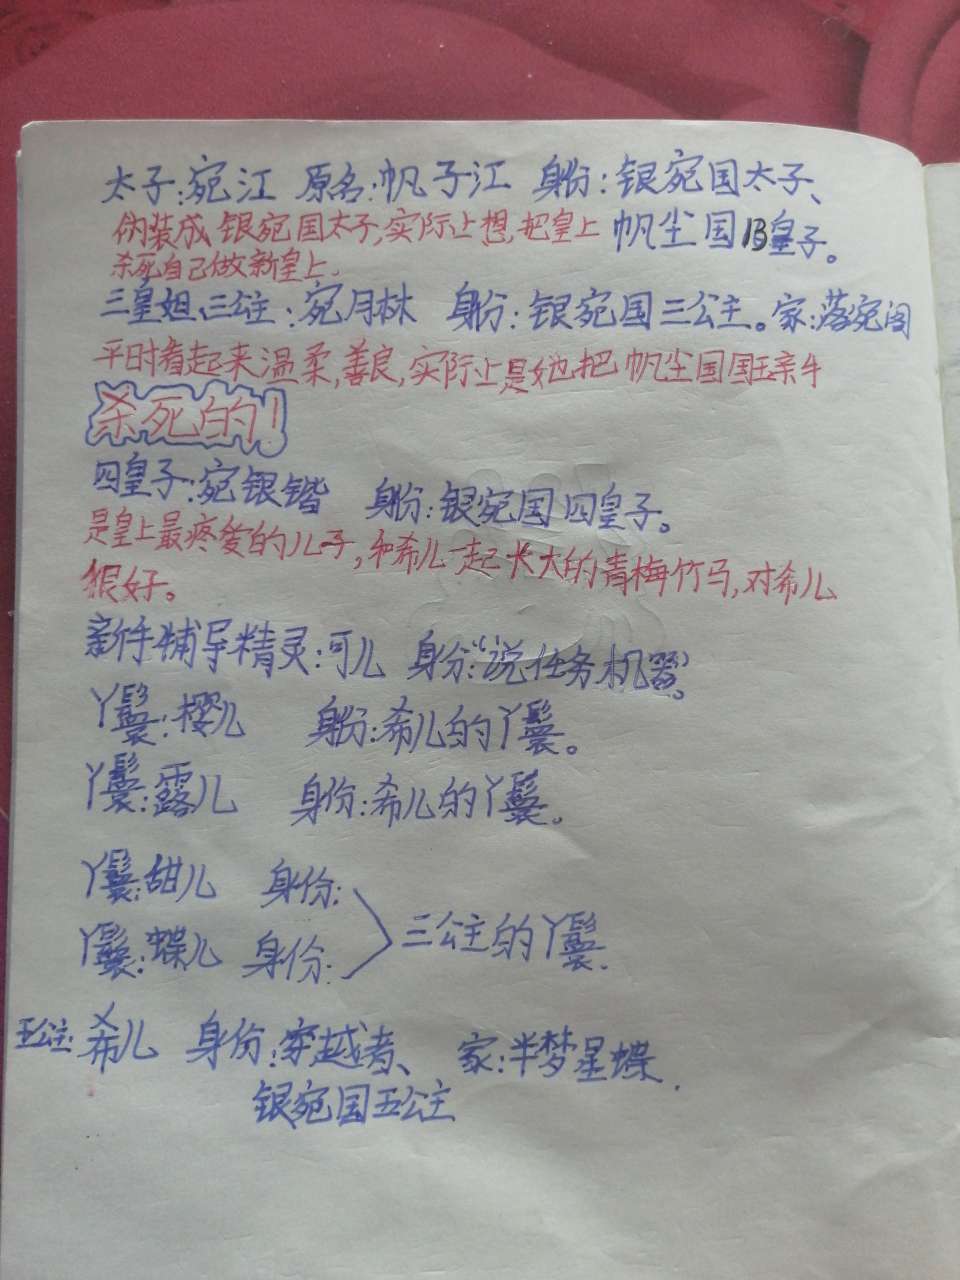 太子:宛江 原名:帆子江 身份:银宛国太子、
伪装成银宛国太子,实际上想,把皇上 帆尘国13皇子。
杀死自己做新皇上.
三皇姐、三公主:宛月林 身份:银宛国三公主。家:落宛阁
平时看起来温柔,善良,实际上是她把帆尘国国王亲手
杀死的!
四皇子:宛银锴 身份:银宛国四皇子。
是皇上最疼爱的儿子,和希儿一起长大的青梅竹马,对希儿
很好。
新手辅导精灵:可儿 身份:“说任务机器”。
丫鬟:樱儿 身份:希儿的丫鬟。
丫鬟:露儿 身份:希儿的丫鬟。
丫鬟:甜儿 身份:
丫鬟:蝶儿 身份:
三公主的丫鬟.
五公主:希儿 身份:穿越者、 家:半梦星蝶.
银宛国五公主